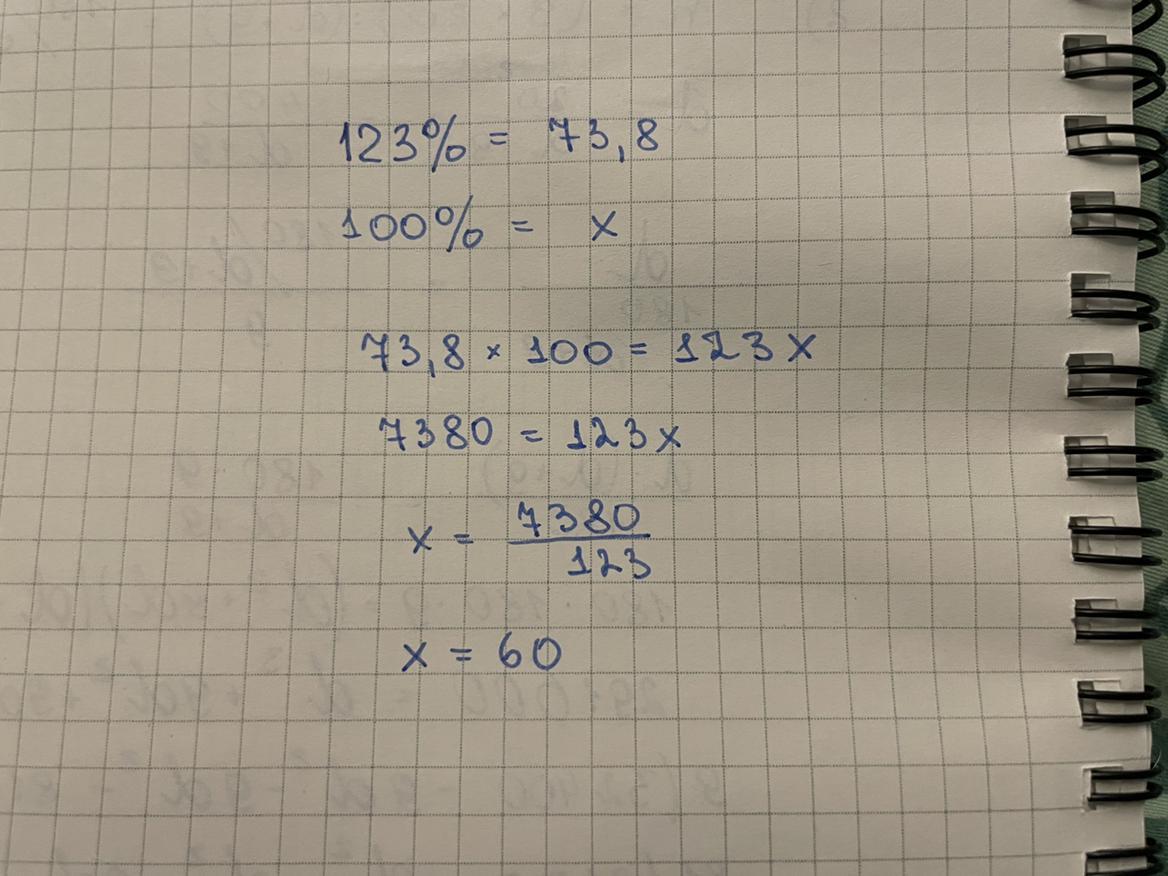 123% = 73,8
100% = x
73,8 × 100 = 123x
7380 = 123x
x = 7380/123
x = 60